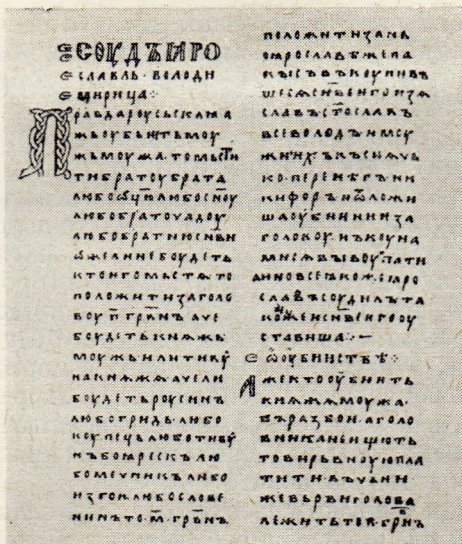 СОУДЪ ИРО
СЛАВЛЬ · ВОЛОДИ
МИРИЦА ⁘
ПРАВДА РОУСЬСКАЯ А
ЖЬ ОУБЬЕТЬ МОУ
ЖЬ МОУЖА · ТО МЬСТИ
ТИ БРАТОУ БРАТА
ЛЮБО ѾЦЮ ЛЮБО СНОУ
ЛЮБО БРАТОУЧАДОУ
ЛЮБО БРАТНЮ СНВИ
БОУДЕТЬ
КТО ИГО МЬСТЯ ТО
ПОЛОЖИТИ ЗА ГОЛО
ВОУ П ГРВНЪ АЧЕ
БОУДЕТЬ КНЯЖЬ
МОУЖЬ ИЛИ ТИВОУ
НА КНЯЖА АЧЕ ЛИ
БОУДЕТЬ РОУСИНЪ
ЛЮБО ГРИДЬ · ЛЮБО
КОУПЕЦЬ ЛЮБО ТИВОУ
НЪ БОЯРЕСКЪ ЛЮ
БО МЕЧНИКЪ ЛЮБО
ИЗГОИ · ЛЮБО СЛОВЕ
НИНЪ ТО · М · ГРВНЪ
ПОЛОЖИТИ ЗА НЬ
ПО ЯРОСЛАВЕ ЖЕ ПА
КЫ СЪВЪКОУПИВЪ
ШЕСЯ СНВЕ ЕГО ИЗЯ
СЛАВЪ СТОСЛАВЪ
ВСЕВОЛОДЪ И МОУ
ЖИ ИХЪ КЪСНЯЧЬ
КО · ПЕРЕНѢГЪ НИ
КИФОРЪ И ѾЛОЖИ
ША ОУБИЕНИЕ ЗА
ГОЛОВОУ НЪ КОУНА
МИ СЯ ВЫКОУПАТИ
А ИНО ВСЕ ЯКОЖЕ ЯРО
СЛАВЪ СОУДИЛЪ ТА
КОЖЕ И СНВЕ ЕГО ОУ
СТАВИША ⁘ —
Ѡ ОУБИИСТВѢ ⁘
АЖЕ КТО ОУБИЕТЬ
КНЯЖА МОУЖА ·
ВЪ РАЗБОИ · А ГОЛО
ВНИКА НЕ ИЩЮТЬ
ТО ВИРЬВНОУЮ ПЛА
ТИТИ · ВЪ ЧЬЕИ
ЖЕ ВЬРВИ ГОЛОВА
ЛЕЖИТЬ ТО · П · ГРВНЪ